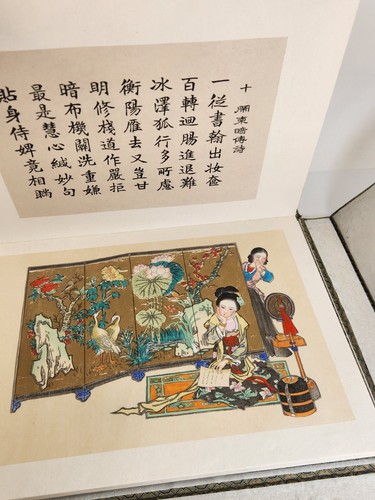 十 鬧柬暗傳詩
一從書翰出妝奩
百轉迴腸進退難
冰澤狐行多所慮
衡陽雁去又豈甘
明修棧道作嚴拒
暗布機關洗重嫌
最是慧心緘妙句
貼身侍婢竟相瞞